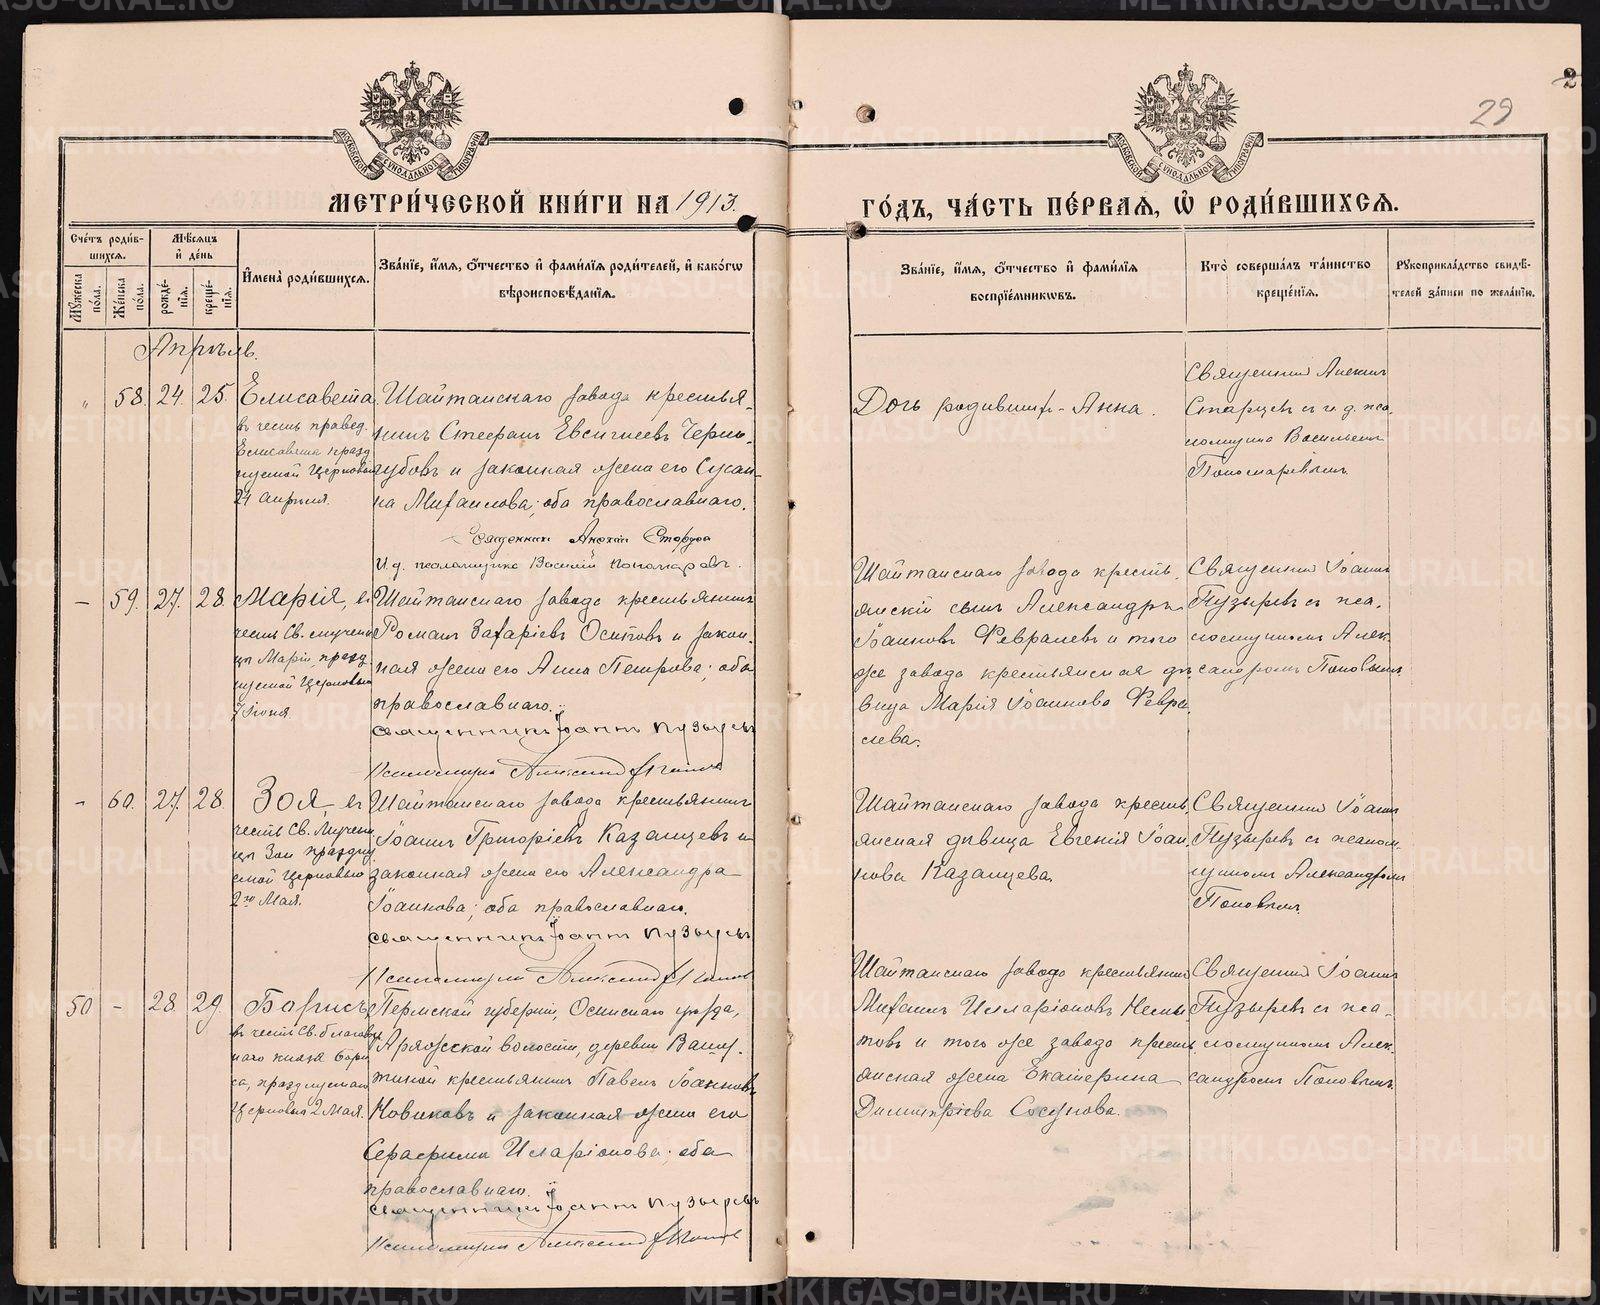 29
МЕТРИ́ЧЕСКОЙ КНИ́ГИ НА 1913.
ГО́ДЪ, ЧА́СТЬ ПЕ́РВАЯ, Ѡ҆ РОДИ́ВШИХСЯ.
Сче́тъ роди́вшихся.
Мѣ́сяцъ и҆ де́нь
Мꙋ́жеска по́ла.
Же́нска по́ла.
рожде́нїя.
креще́нїя.
И҆мена̀ роди́вшихся.
Зва́нїе, и҆́мя, ѻ҆́тчество и҆ фами́лїя роди́телей, и҆ како́гѡ
вѣроисповѣ́данїя.
Зва́нїе, и҆́мя, ѻ҆́тчество и҆ фами́лїя
воспрїе́мникѡвъ.
Кто̀ соверша́лъ та́инство
креще́нїя.
Рꙋкоприкла́дство свидѣ́-
телей за́писи по жела́нїю.
Апрѣль.
" 58. 24. 25.
Елисавета
въ честь правед.
Елисаветы празд
нуемой Церковью
24 апрѣля.
Шайтанскаго завода крестья-
нинъ Стефанъ Евсигнеевъ Черно-
губовъ и законная жена его Сусан-
на Михаилова; оба православнаго.
Священник Алексий Старцев
И. д. псаломщика Василий Пономарев.
Дочь родивших - Анна.
Священникъ Алексий
Старцевъ съ и. д. пса-
ломщика Васильемъ
Пономаревымъ
– 59. 27. 28.
Марія, въ
честь Св. мучени
цы Маріи, празд
нуемой Церковью
7 Іюня.
Шайтанскаго завода крестьянинъ
Романъ Захаріевъ Осиповъ и закон-
ная жена его Анна Петрова; оба
православнаго.
Священникъ Іоаннъ Пузыревъ
Псаломщикъ Александръ Поповъ
Шайтанскаго завода кресть-
янскій сынъ Александръ
Іоанновъ Февралевъ и того
же завода крестьянская дѣ
вица Марія Іоаннова Февра
лева.
Священникъ Іоаннъ
Пузыревъ съ пса-
ломщикомъ Алек-
сандромъ Поповымъ
– 60. 27. 28.
Зоя въ
честь Св. Мучени
цы Зои празднуе
мой Церковью
2го Мая.
Шайтанскаго завода крестьянинъ
Іоаннъ Григоріевъ Казанцевъ и
законная жена его Александра
Іоаннова; оба православнаго.
Священникъ Іоаннъ Пузыревъ
Псаломщикъ Александръ Поповъ
Шайтанскаго завода кресть-
янская дѣвица Евгенія Іоан
нова Казанцева.
Священникъ Іоаннъ
Пузыревъ съ псалом-
щикомъ Александромъ
Поповымъ.
50 – 28 29.
Борисъ,
въ честь Св. благовѣр
наго князя Бори
са, празднуемаго
Церковью 2 Мая.
Пермской губерніи, Осинскаго уѣзда,
Аряжсской волости, деревни
крестьянинъ Павелъ Іоанновъ
Новиковъ и законная жена его
Серафима Иларіонова; оба
православнаго.
Священникъ Іоаннъ Пузыревъ
Псаломщикъ Александръ Поповъ
Шайтанскаго завода крестьянинъ
Михаилъ Илларіоновъ
и того же завода кресть
янская жена Екатерина
Димитріева Сосунова.
Священникъ Іоаннъ
Пузыревъ съ пса-
ломщикомъ Алек-
сандромъ Поповымъ.
METRIKI.GASO-URAL.RU